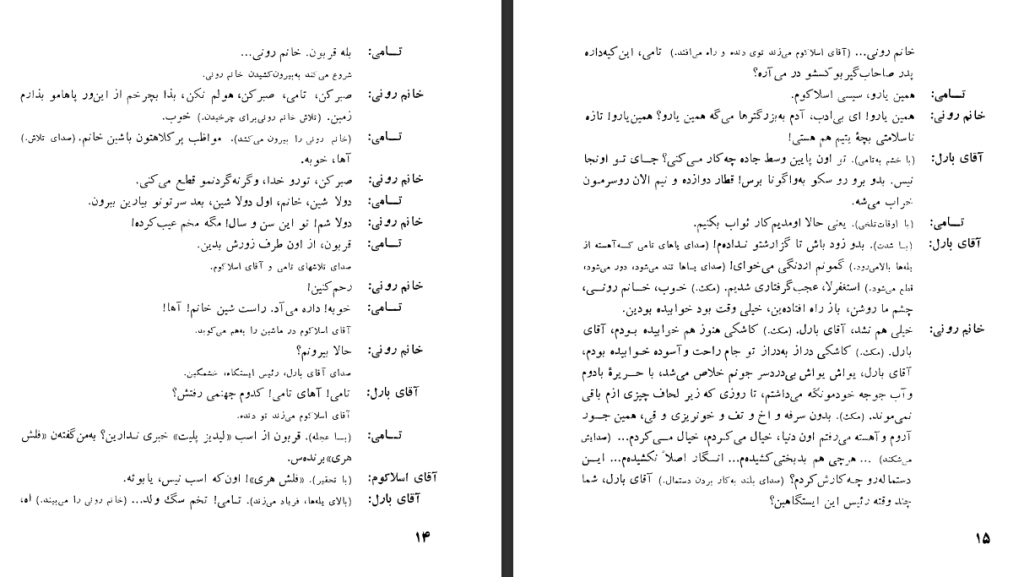 تـامی: بله قربون. خانم رونی...
شروع می‌کند به‌بیرون‌کشیدن خانم رونی.
خانم رونی: صبرکن، تامی، صبرکن، هولم نکن، بذا بچرخم از این‌ور پاهامو بذارم
زمین. (تلاش خانم رونی‌برای چرخیدن.) خوب.
تـامی: (خانم رونی را بیرون می‌کشد). مواظب پرکلاهتون باشین خانم. (صدای تلاش.)
آها، خوبه.
خانم رونی: صبرکن، تورو خدا، وگرنه‌گردنمو قطع می‌کنی.
تـامی: دولا شین، خانم، اول دولا شین، بعد سرتونو بیارین بیرون.
خانم رونی: دولا شم! تو این سن و سال! مگه مخم عیب‌کرده!
تـامی: قربون، از اون طرف زورش بدین.
صدای تلاشهای تامی و آقای اسلاکوم.
خانم رونی: رحم‌کنین!
تـامی: خوبه! داره می‌آد. راست شین خانم! آها!
آقای اسلاکوم در ماشین را به‌هم می‌کوبد.
خانم رونی: حالا بیرونم؟
صدای آقای بارل، رئیس ایستگاه، خشمگین.
آقای بارل: تامی! آهای تامی! کدوم جهنمی رفتش؟
آقای اسلاکوم می‌زند تو دنده.
تـامی: (بـا عجله). قربون از اسب «لیدیز پلیت» خبری ندارین؟ به‌من‌گفته‌ن «فلش
هری» برنده‌س.
آقای اسلاکوم: (با تحقیر). «فلش هری»! اون‌که اسب نیس، یابوئه.
آقای بارل: (بالای پله‌ها، فریاد می‌زند). تـامی! تخم سگ ولد... (خانم رونی را می‌بیند.) اه،
۱۴
خانم رونی... (آقای اسلاکوم می‌زند توی دنده و راه می‌افتد.) تامی، این‌کیه‌داره
پدر صاحاب‌گیربوکسشو در می‌آره؟
تـامی: همین یارو، سیسی اسلاکوم.
خانم رونی: همین یارو! ای بی‌ادب، آدم به‌بزرگترها می‌گه همین یارو؟ همین‌یارو! تازه
ناسلامتی بچۀ یتیم هم هستی!
آقای بارل: (با خشم به‌تامی). تو اون پایین وسط جاده چه‌کار می‌کنی؟ جـای تو اونجا
نیس. بدو برو رو سکو به‌واگونا برس! قطار دوازده و نیم الان روسرمون
خراب می‌شه.
تـامی: (با اوقات‌تلخی). یعنی حالا اومدیم‌کار ثواب بکنیم.
آقای بارل: (بـا شدت). بدو زود باش تا گزارشتو نداده‌م! (صدای پاهای تامی کـه‌آهسته از
پله‌ها بالامی‌رود.) گمونم اردنگی می‌خوای! (صدای پـاها تند می‌شود، دور می‌شود،
قطع می‌شود.) استغفرلا، عجب‌گرفتاری شدیم. (مکث.) خـوب، خـانم رونـی،
چشم ما روشن، باز راه افتاده‌ین، خیلی وقت بود خوابیده بودین.
خانم رونی: خیلی هم نشد، آقای بارل. (مکث.) کاشکی هنوز هم خوابیده بـودم، آقای
بارل. (مکث.) کاشکی دراز به‌دراز تو جام راحت و آسوده خـوابیده بودم،
آقای بارل، یواش یواش بی‌دردسر جونم خلاص می‌شد، با حـریرۀ بادوم
و آب جوجه خودمونگه می‌داشتم، تا روزی که زیر لحاف چیزی ازم باقی
نمی‌موند. (مکث). بدون سرفه و اخ و تف و خونریزی و قی، همین جـور
آروم و آهسته می‌رفتم اون دنیا، خیال می‌کردم، خیال مـی‌کردم... (صدایش
می‌شکند) ... هرچی هم بدبختی‌کشیده‌م... انـگار اصلاً نکشیده‌م... ایـن
دستماله‌رو چـه‌کارش‌کردم؟ (صدای بلند به‌کار بردن دستمال.) آقای بارل، شما
چند وقته رئیس این ایستگاهین؟
۱۵